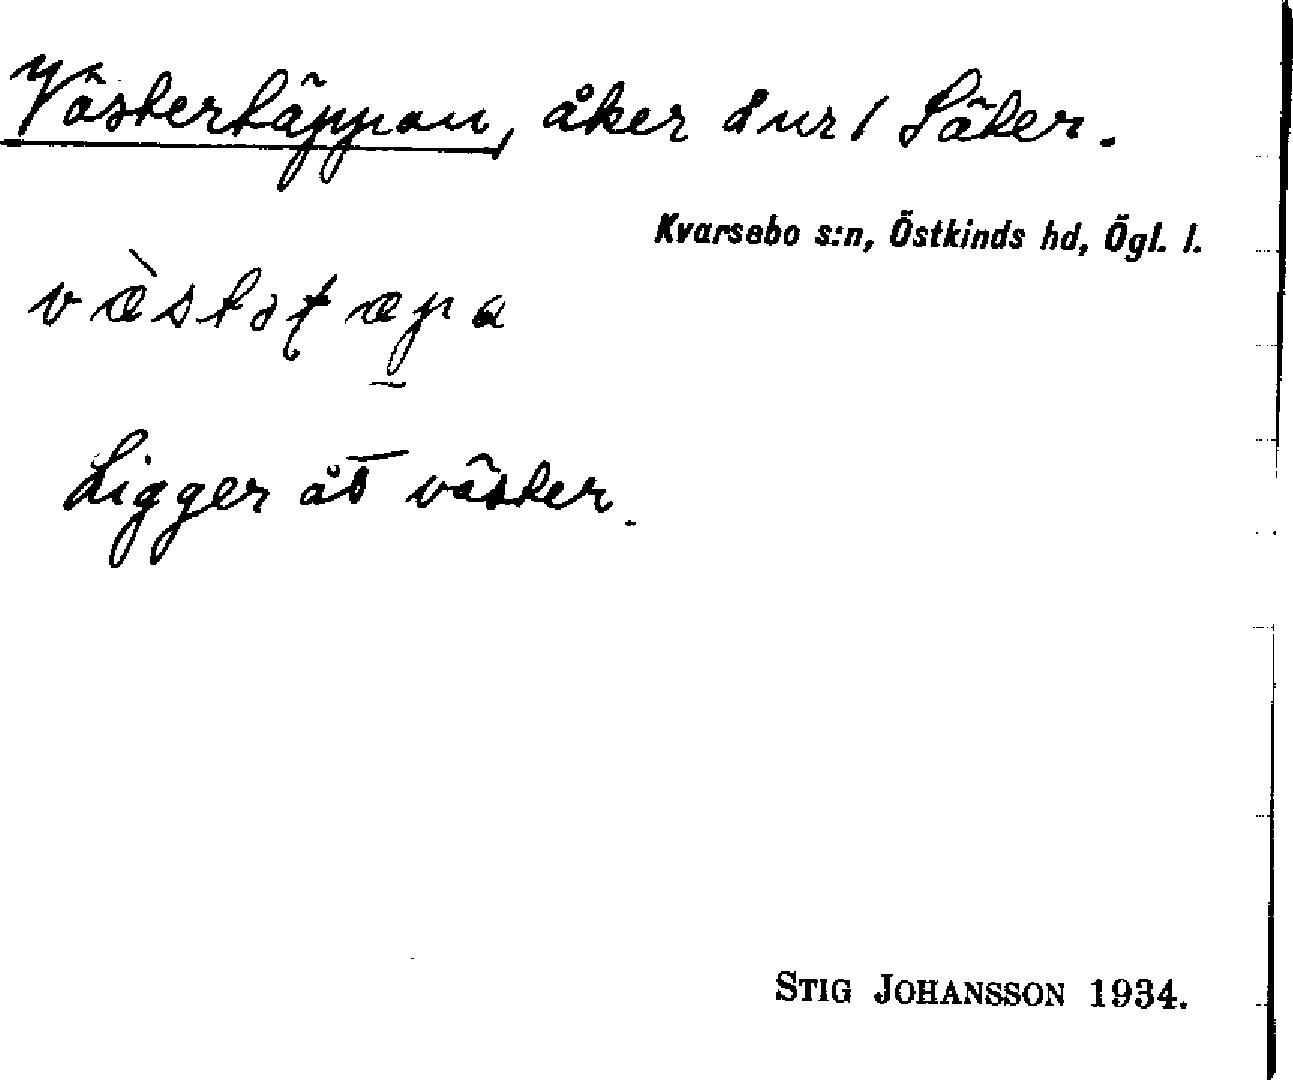 Västertäppan, åker å nr 1 Säter.
Kvarsebo s:n, Östkinds hd, Ögl. l.
Ligger åt väster.
STIG JOHANSSON 1934.